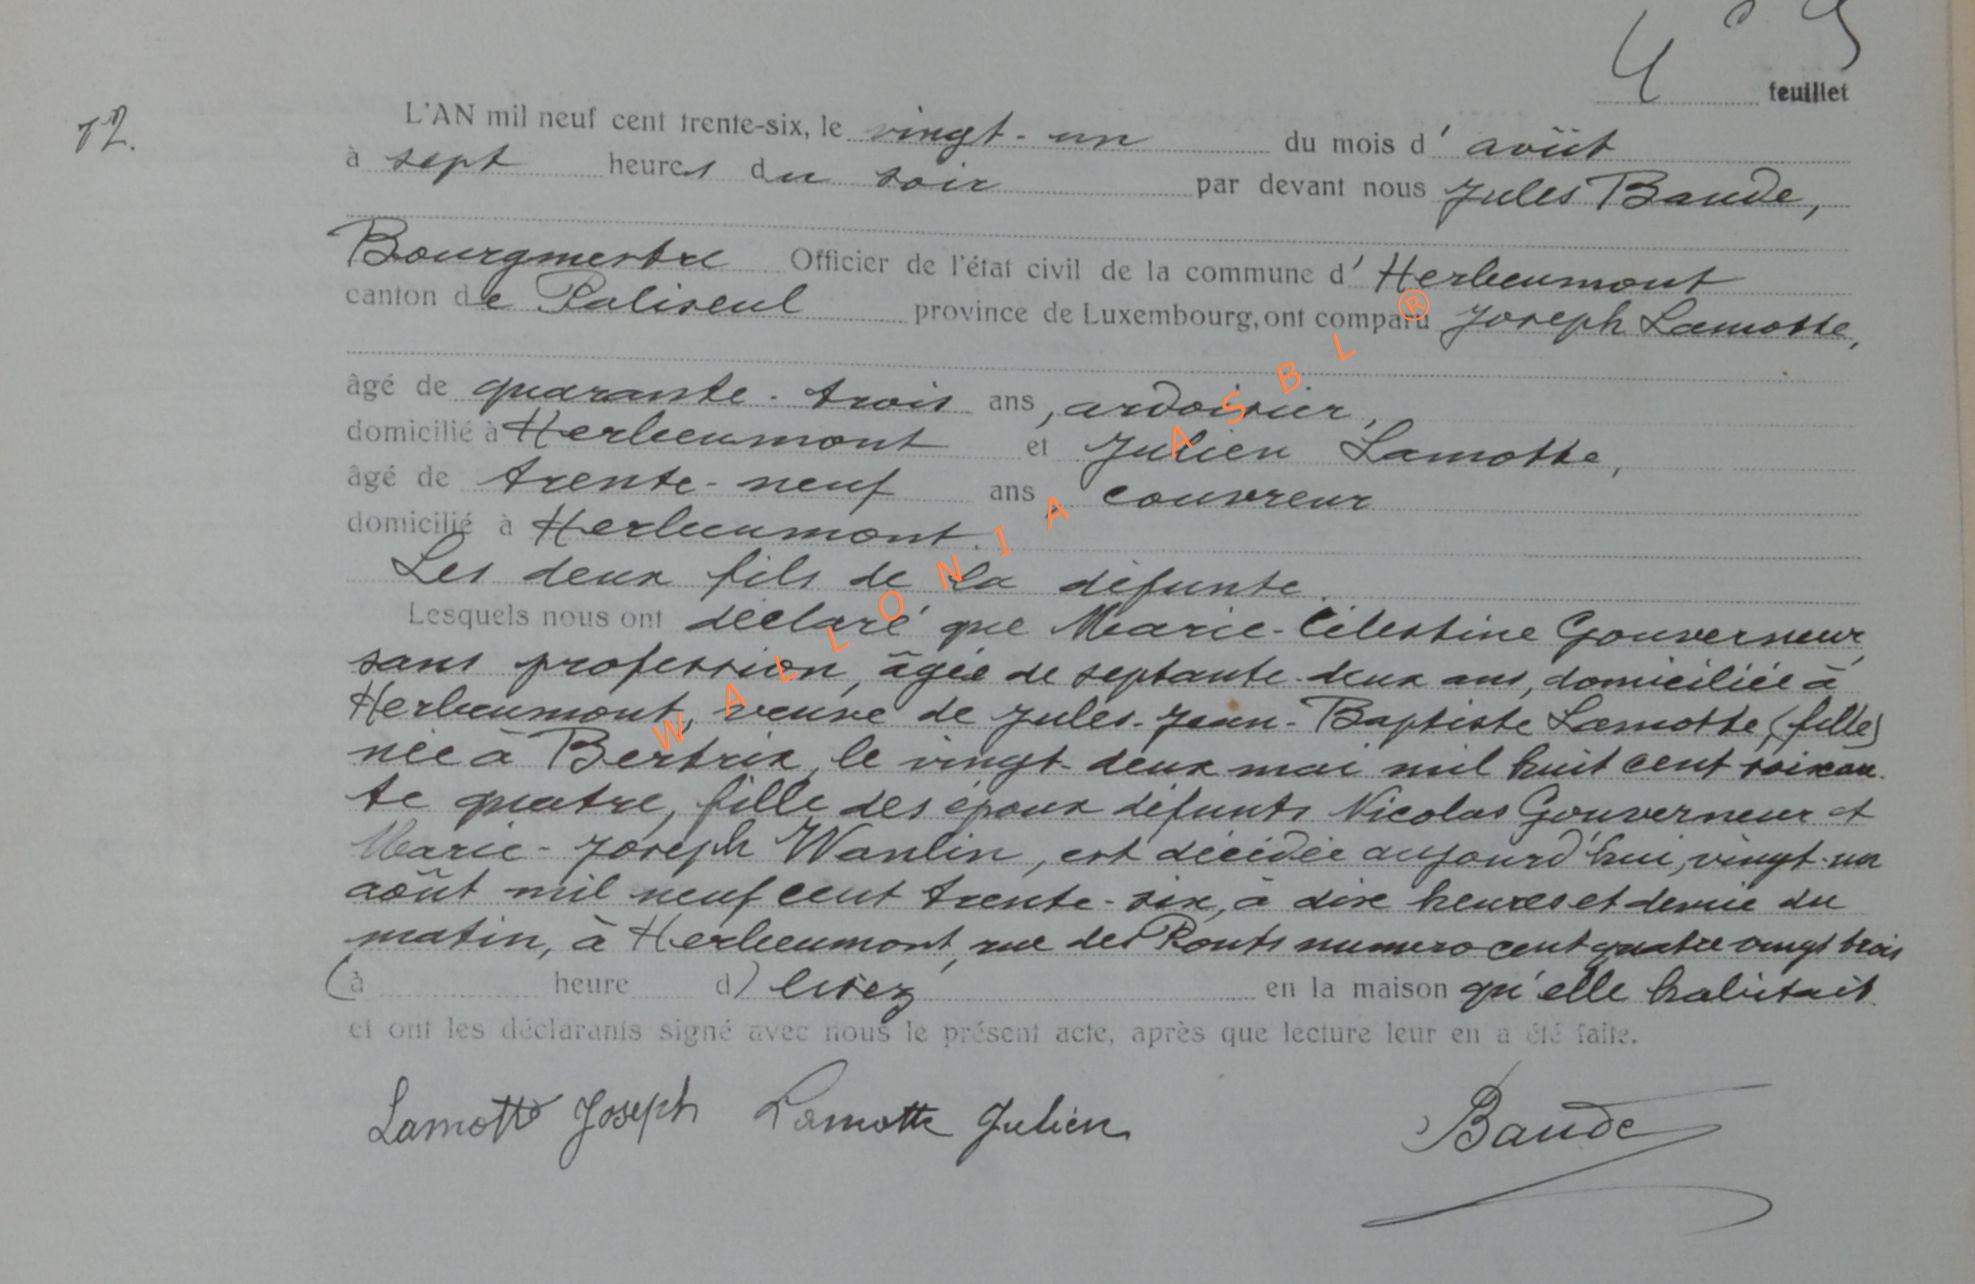 4 feuillet
12.
L'AN mil neuf cent trente-six, le vingt-un du mois d'août
à sept heures du soir par devant nous Jules Baude,
Bourgmestre Officier de l'état civil de la commune d'Herbeumont
canton de Paliseul province de Luxembourg, ont comparu Joseph Lamotte,
âgé de quarante-trois ans, ardoisier,
domicilié à Herbeumont et Julien Lamotte,
âgé de trente-neuf ans couvreur
domicilié à Herbeumont.
Les deux fils de la défunte.
Lesquels nous ont déclaré que Marie-Célestine Gouverneur,
sans profession, âgée de septante-deux ans, domiciliée à
Herbeumont, veuve de Jules-Jean-Baptiste Lamotte, (fille)
née à Bertrix, le vingt-deux mai mil huit cent soixan-
te quatre, fille des époux défunts Nicolas Gouverneur et
Marie-Joseph Wanlin, est décédée aujourd'hui, vingt-un
août mil neuf cent trente-six, à dix heures et demie du
matin, à Herbeumont, rue des Ponts numero cent quatre vingt trois
(à heure d) lisez en la maison qu'elle habitait
et ont les déclarants signé avec nous le présent acte, après que lecture leur en a été faite.
Lamotte Joseph Lamotte Julien Baude
WALLONIA ASBL ®